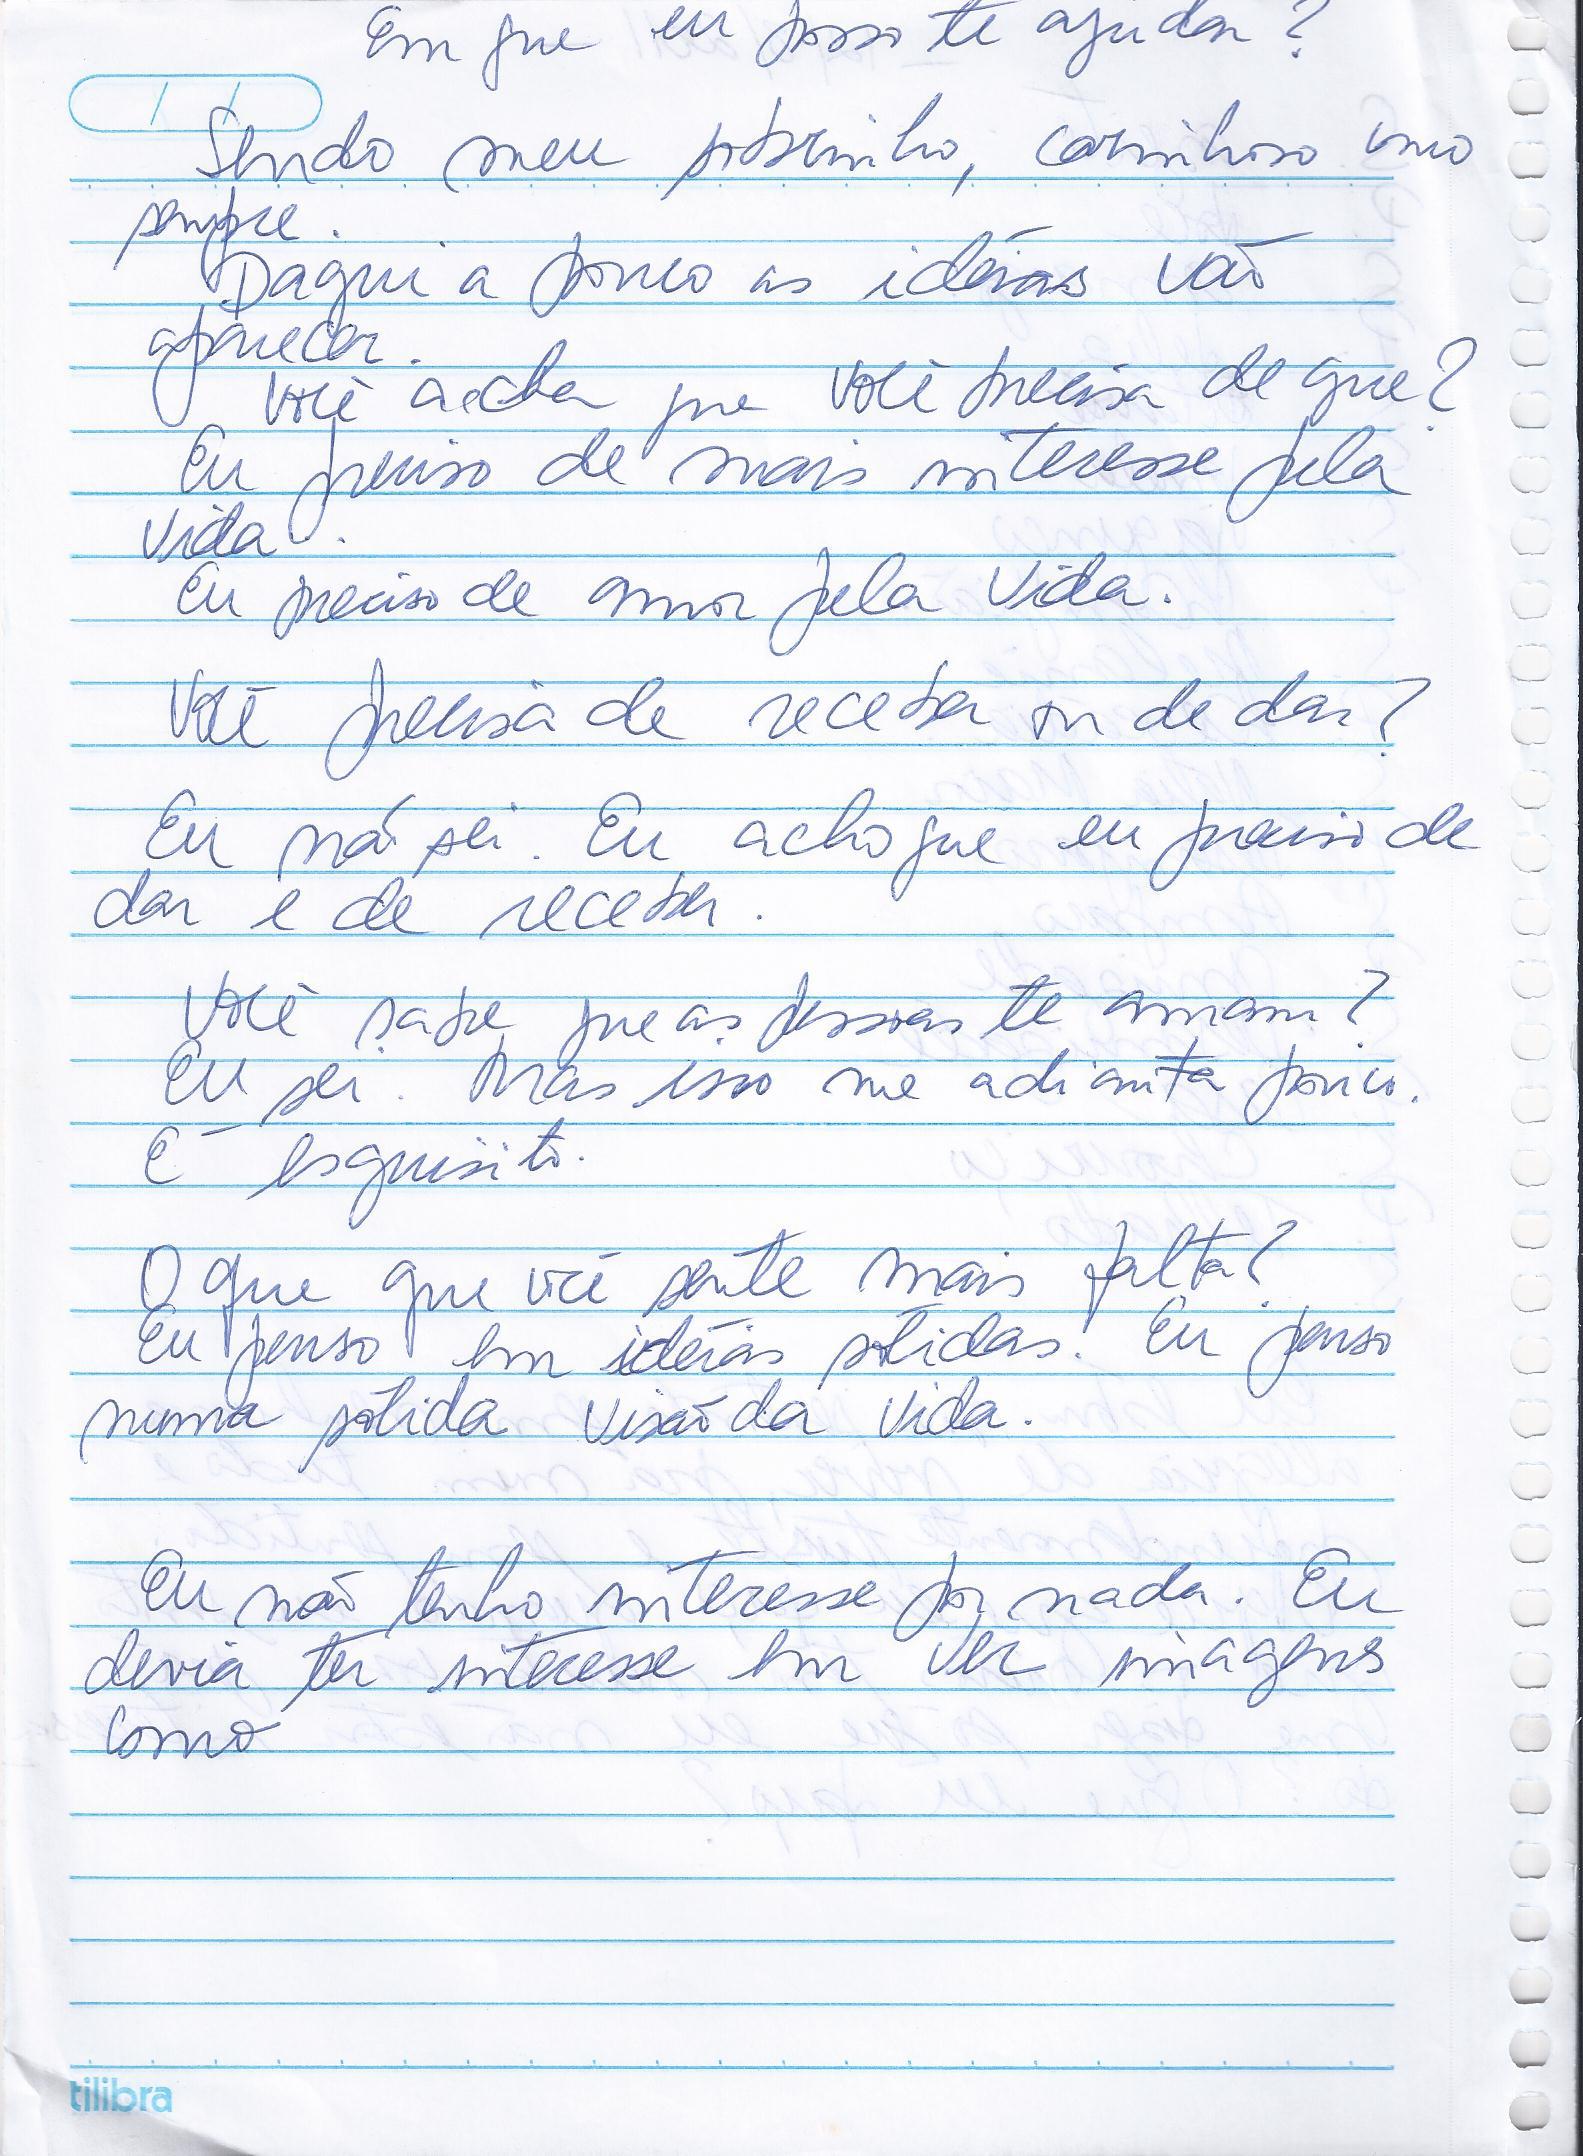 Em que eu posso te ajudar?
Sendo meu sobrinho, carinhoso como
sempre.
Daqui a pouco as idéias vão
aparecer.
Você acha que você precisa de que?
Eu preciso de mais interesse pela
vida.
Eu preciso de amor pela vida.
Você precisa de receber ou de dar?
Eu não sei. Eu acho que eu preciso de
dar e de receber.
Você sabe que as pessoas te amam?
Eu sei. Mas isso me adianta pouco.
É esquisito.
O que que você sente mais falta?
Eu penso em idéias sólidas. Eu penso
numa sólida visão da vida.
Eu não tenho interesse por nada. Eu
devia ter interesse em ver imagens
como
tilibra